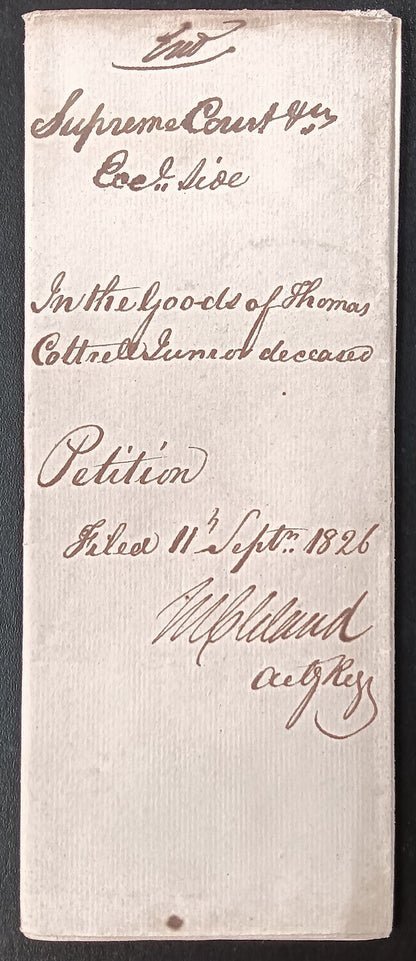 Ent
Supreme Court &ca
Eccl. Side
In the Goods of Thomas
Cottrell Junior deceased
Petition
Filed 11h Septr. 1826
Actg Regr